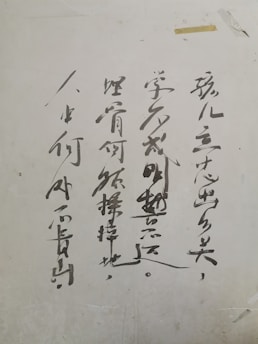 孩儿立志出乡关，
学不成明不还。
埋骨何须地，
人生何处不青山。